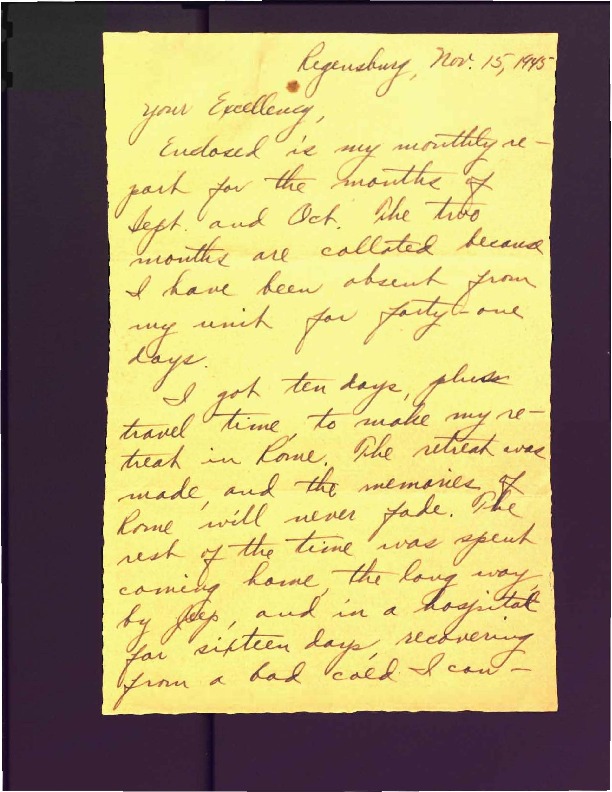 Regensburg, Nov. 15, 1945
Your Excellency,
Enclosed is my monthly re-
port for the months of
Sept. and Oct. The two
months are collated because
I have been absent from
my unit for forty-one
days.
I got ten days, plus
travel time, to make my re-
treat in Rome. The retreat was
made, and the memories of
Rome will never fade. The
rest of the time was spent
coming home, the long way,
by jeep, and in a hospital
for sixteen days, recovering
from a bad cold I con-